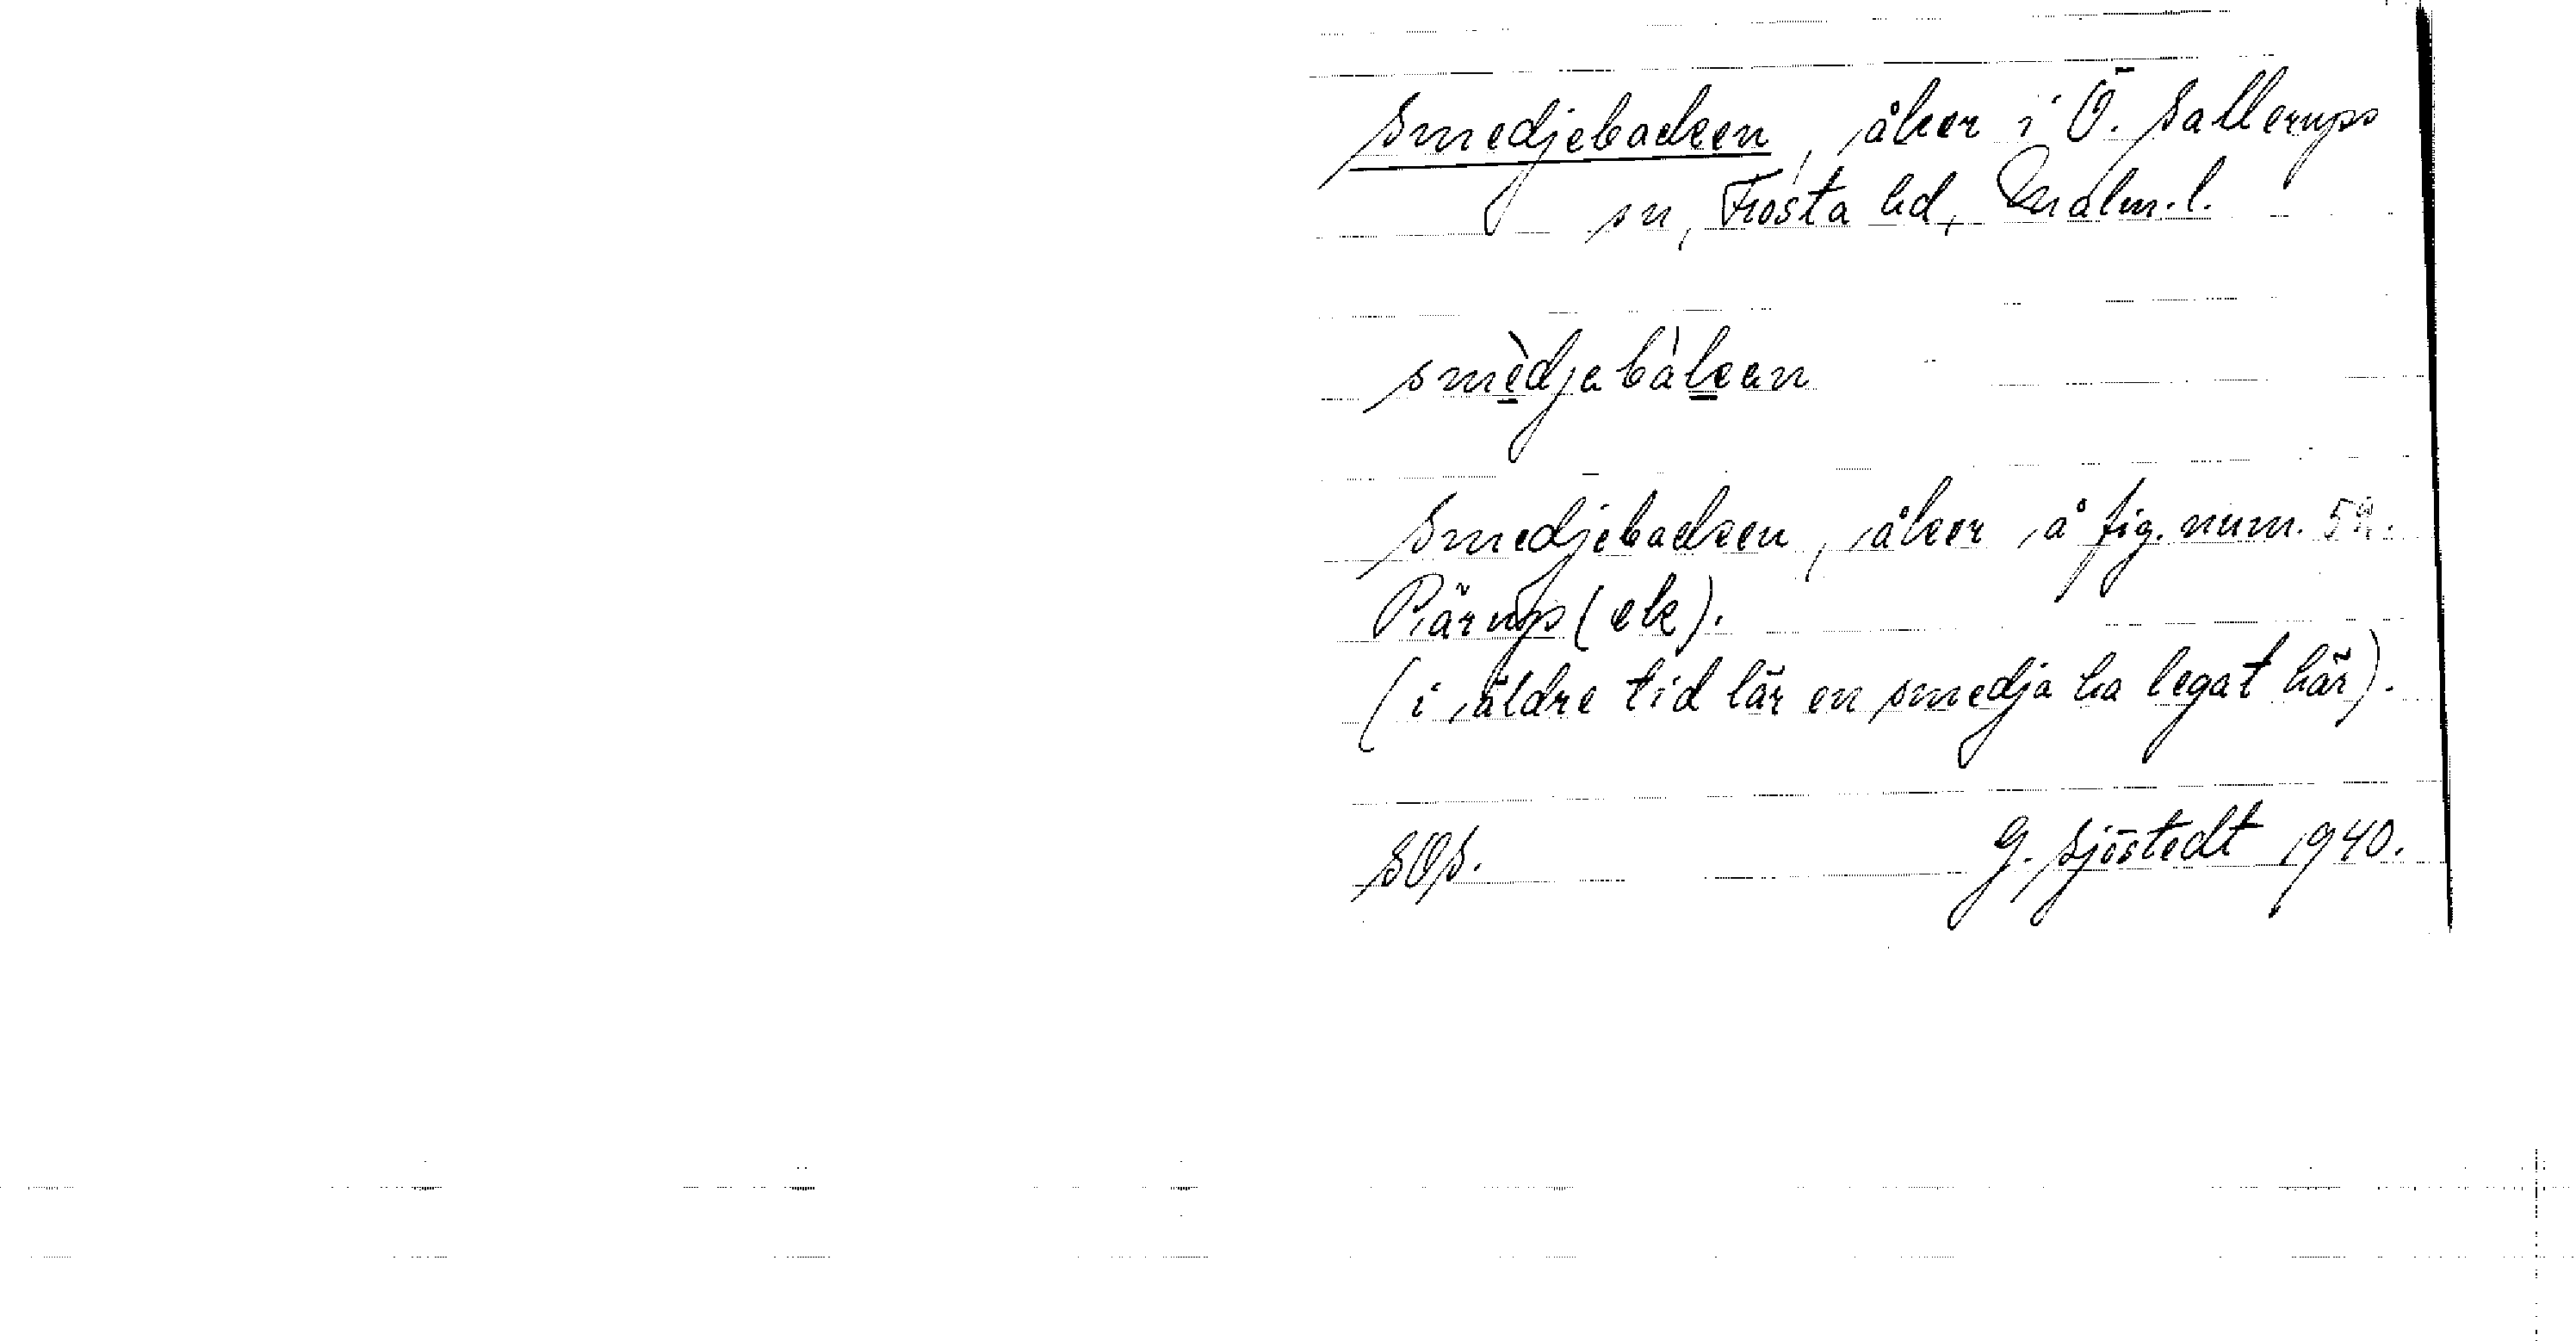 Smedjebacken, åker i Ö. Sallerups
sn, Frosta hd, Malm. l.
smèdjebàken
Smedjebacken, åker å fig. num. 52.
Pärup (ek).
(i äldre tid lär en smedja ha legat här).
SOS. G. Sjöstedt 1940.